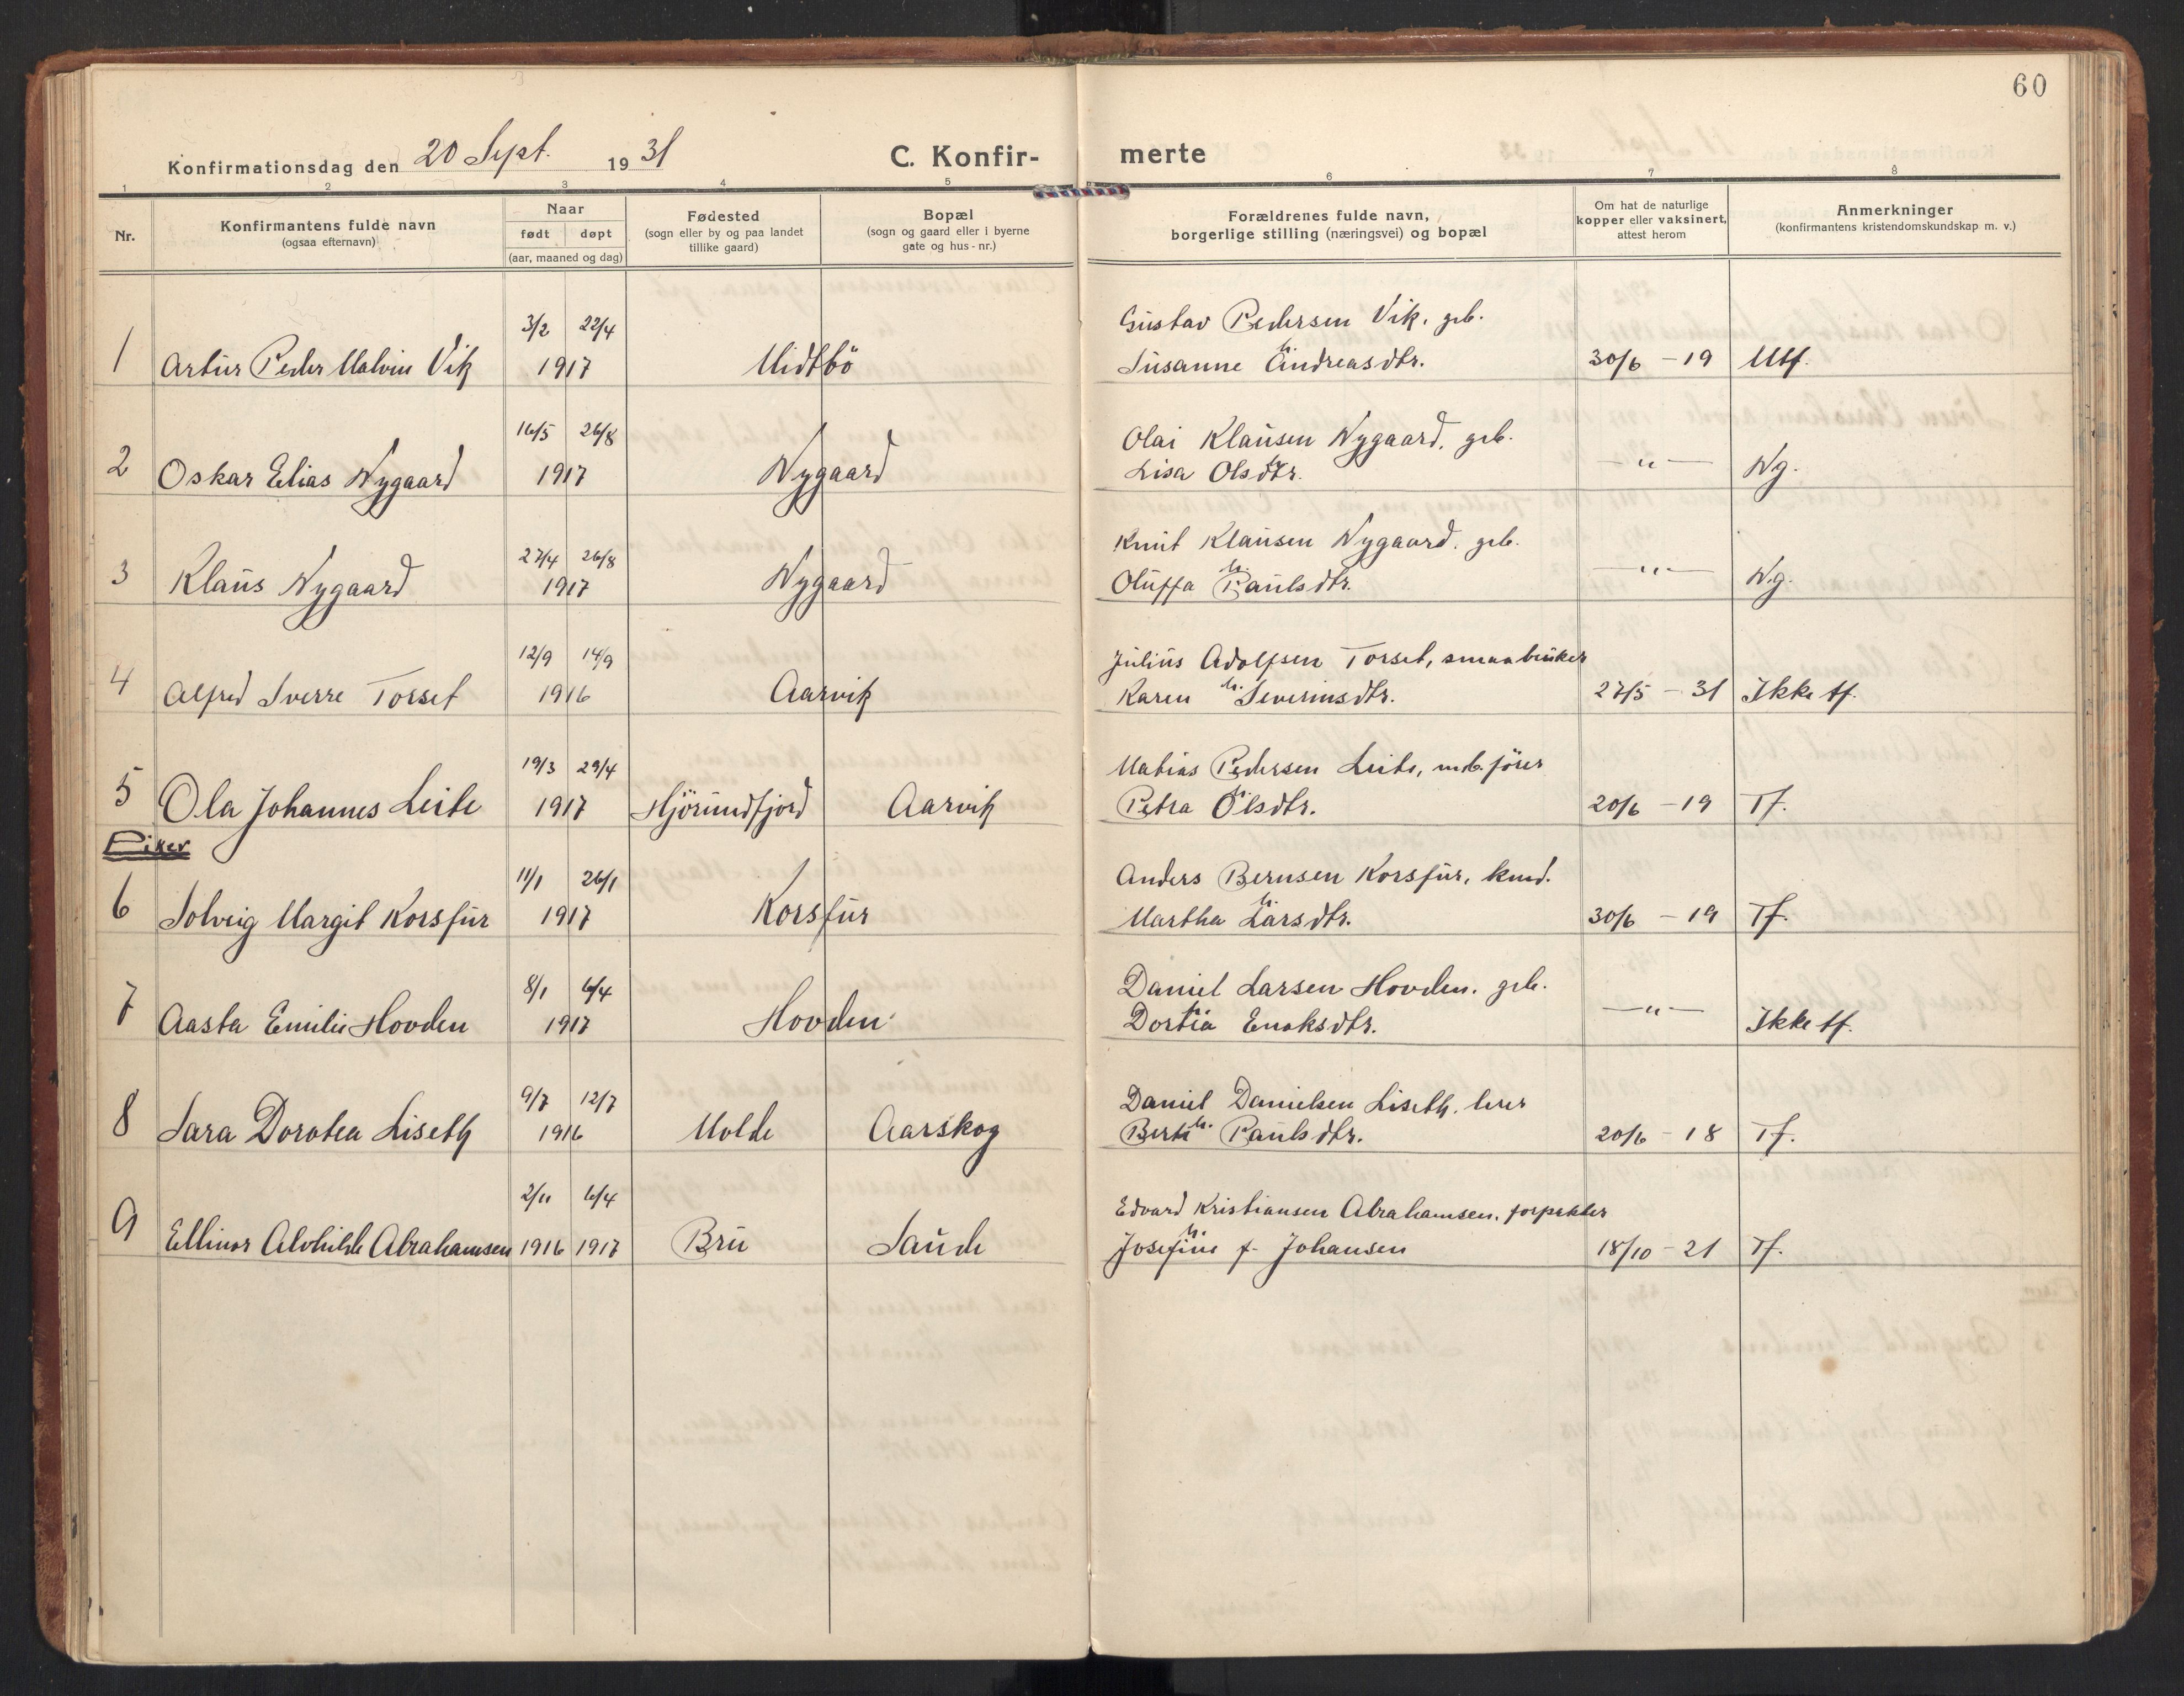 60
Konfirmationsdag den 20 Sept. 1931
C. Konfir- merte
1 2 3 4 5 6 7 8
Nr.
Konfirmantens fulde navn
(ogsaa efternavn)
Naar
født døpt
(aar, maaned og dag)
Fødested
(sogn eller by og paa landet
tillike gaard)
Bopæl
(sogn og gaard eller i byerne
gate og hus-nr.)
Forældrenes fulde navn,
borgerlige stilling (næringsvei) og bopæl
Om hat de naturlige
kopper eller vaksinert,
attest herom
Anmerkninger
(konfirmantens kristendomskundskap m. v.)
3/2 22/4 Gustav Pedersen Vik, gb.
1 Artur Peder Malvin Vik 1917 Midtbö Susanne Andreasdtr. 30/6 - 19 Mtf.
16/5 26/8 Olai Klausen Nygaard, gb.
2 Oskar Elias Nygaard 1917 Nygaard Lisa Olsdtr. — " — Ng.
27/4 26/8 Knut Klausen Nygaard, gb.
3 Klaus Nygaard 1917 Nygaard Oluffa Paulsdtr. — " — Ng.
12/9 14/9 Julius Adolfsen Torset, smaabruker
4 Alfred Sverre Torset 1916 Aarvik Karen Severinsdtr. 27/5 - 31 Ikke tf.
19/3 29/4 Matias Pedersen Leite, mb. förer
5 Ola Johannes Leite 1917 Hjörundfjord Aarvik Petra Olsdtr. 20/6 - 19 Tf.
Piker
11/1 26/1 Anders Bernsen Korsfur, kmd.
6 Solveig Margit Korsfur 1917 Korsfur Martha Larsdtr. 30/6 - 19 Tf.
8/1 6/4 Daniel Larsen Hovden, gb.
7 Aasta Emilie Hovden 1917 Hovden Dortia Enoksdtr. — " — Ikke tf.
9/7 12/7 Daniel Danielsen Liseth, lærer
8 Sara Dorotea Liseth 1916 Molde Aarskog Berte Paulsdtr. 20/6 - 18 Tf.
2/11 6/4 Edvard Kristiansen Abrahamsen, forpakter
9 Ellinor Alvhilde Abrahamsen 1916 1917 Bru Saude Josefine f. Johansen 18/10 - 21 Tf.